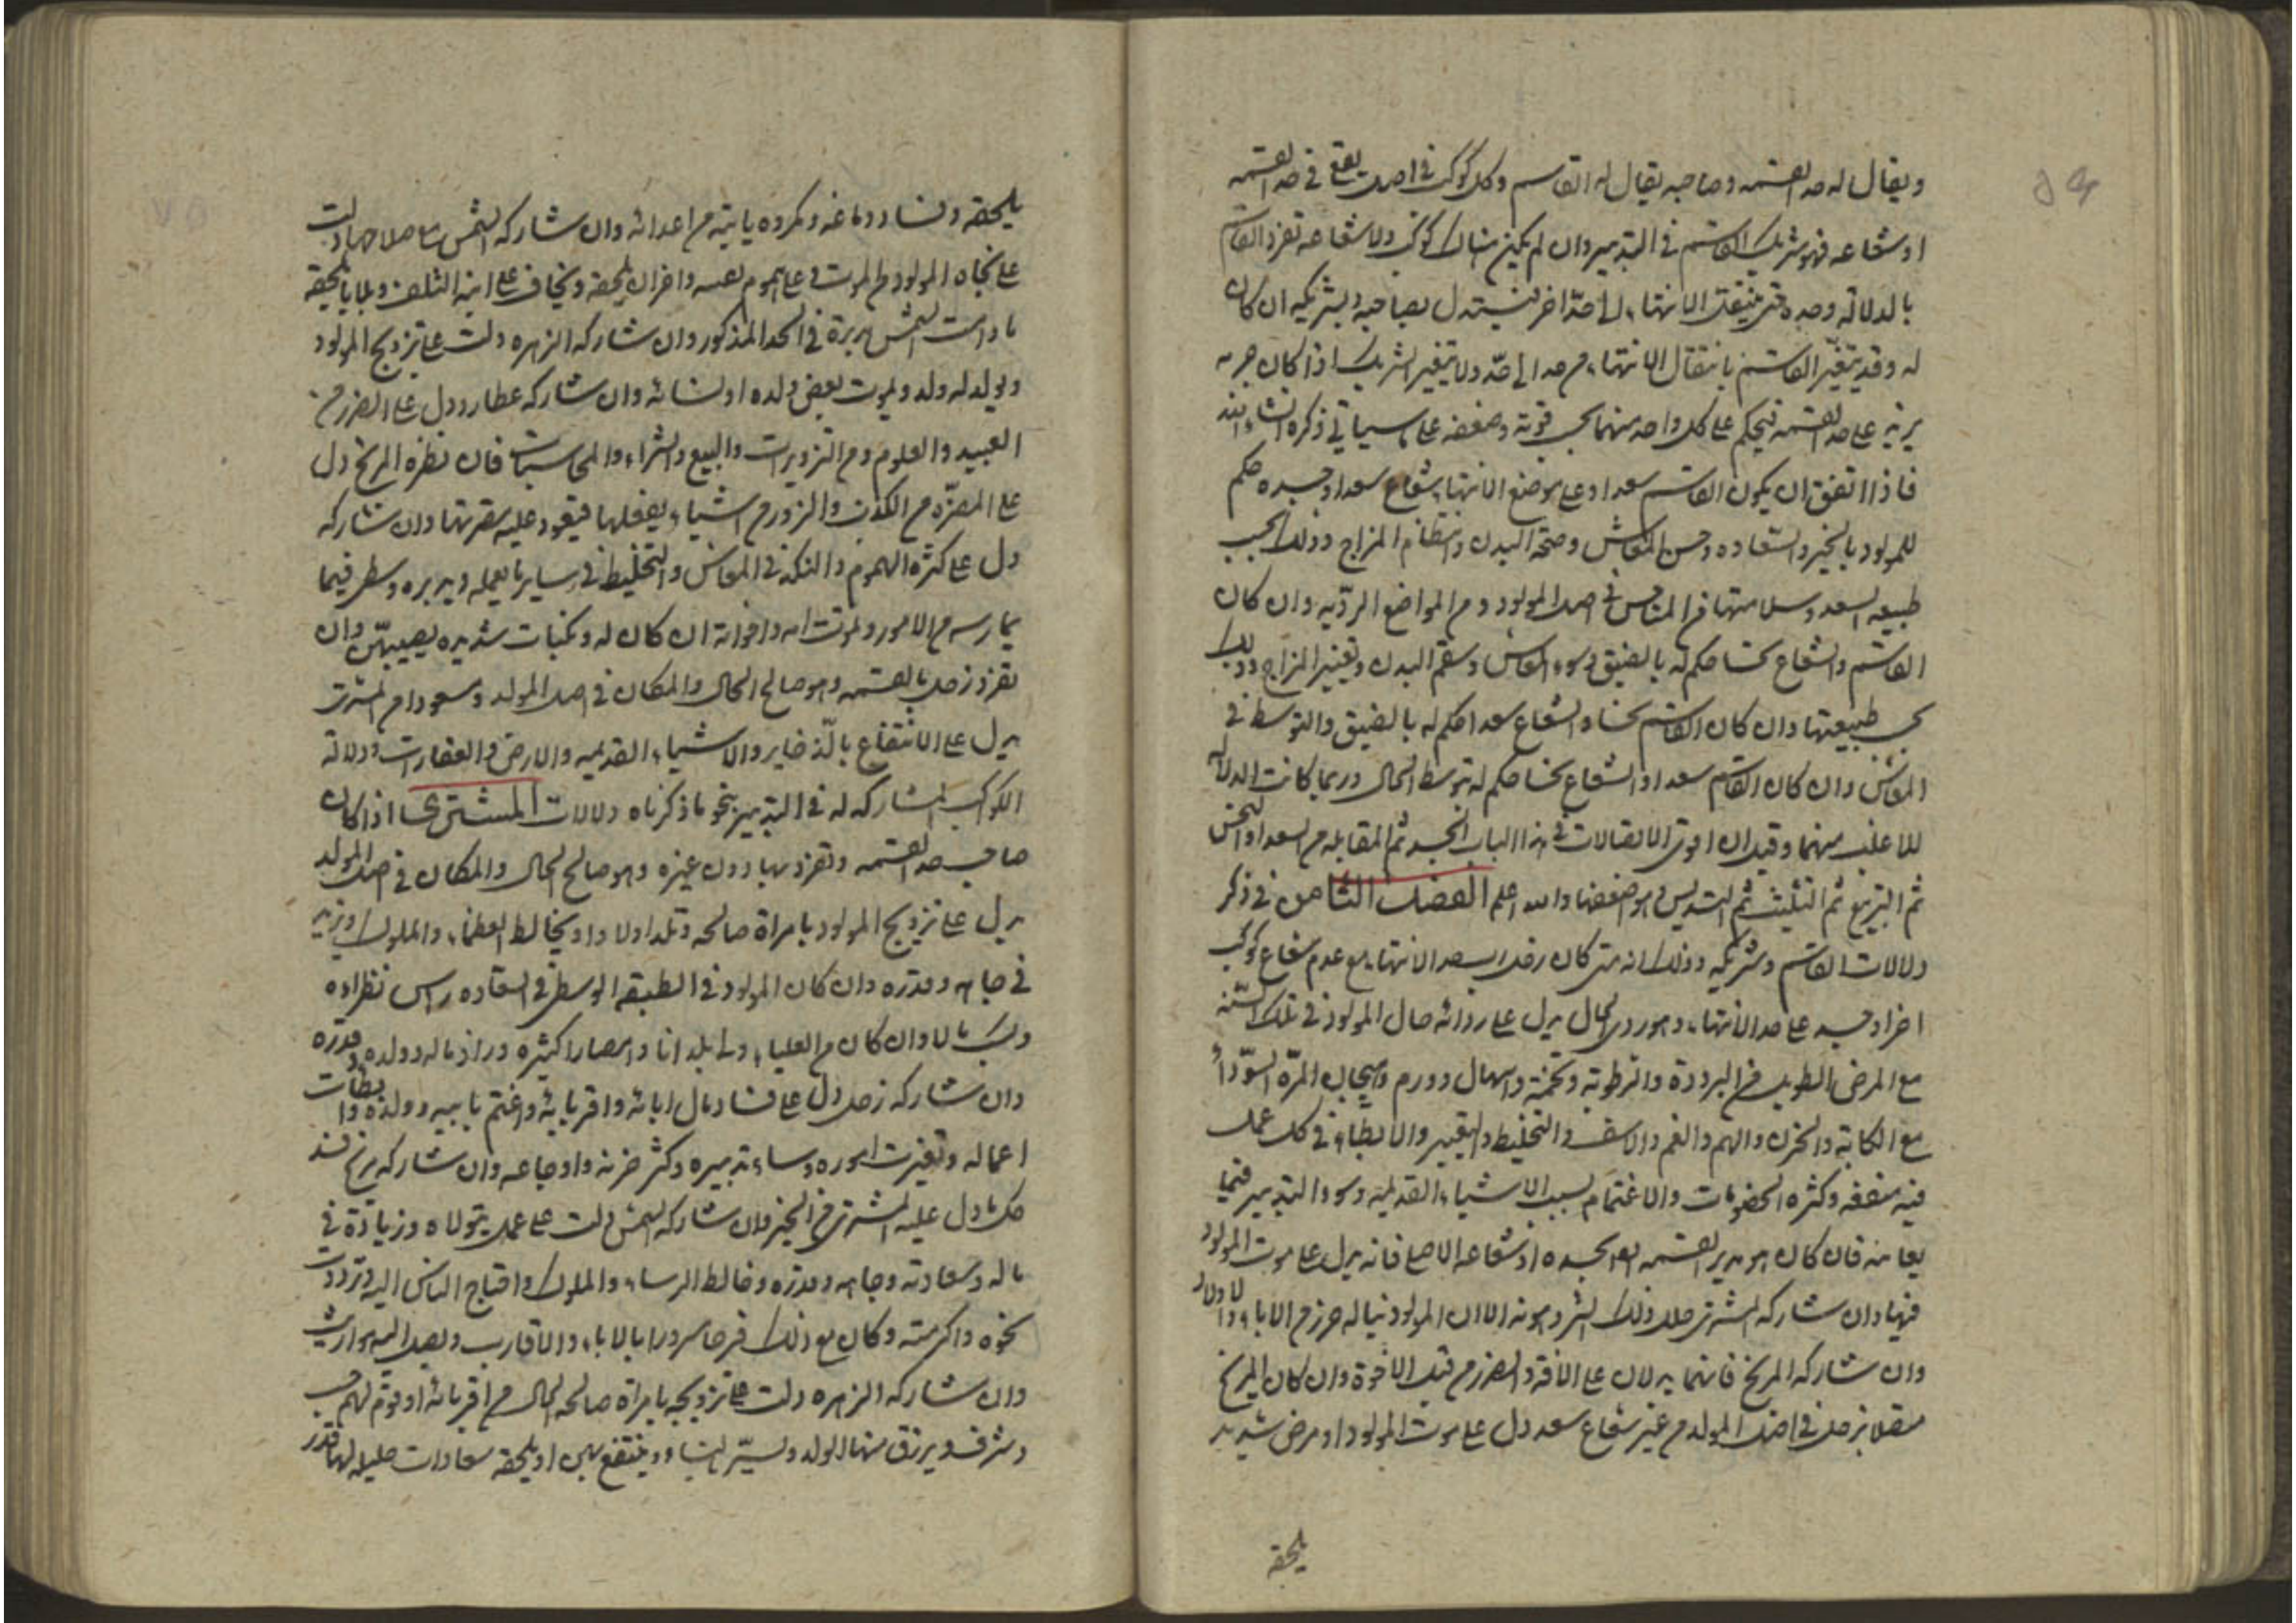 ويقال له حد القسمه وصاحبه يقال له القاسم وكل كوكب في اصل يقع في حد القسمه
او شعاعه فهو شريك القاسم في التدبير وان لم يكن هناك كوكب ولا شعاعه تفرد القاسم
بالدلالة وحده حتى ينتقل الانتهاء الى حدّ اخر فيستدل بصاحبه وبشريكه ان كان
له وقد يتغير القاسم بانتقال الانتهاء من حد الى حدّ ولا يتغير الشريك اذا كان جرمه
يربى على حد القسمه فيحكم على كل واحد منهما بحسب قوته وضعفه على ما سياتي ذكره انشاء الله
فاذا اتفق ان يكون القاسم سعدا وعلى موضع الانتهاء شعاع سعد او جسده حكم
للمولود بالخير والسعاده وحسن المعاش وصحة البدن وانتظام المزاج وذلك بحسب
طبيعه السعد وسلامتها من المناحس في اصل المولود ومن المواضع الرديه وان كان
القاسم والشعاع نحسا حكم له بالضيق وسوء المعاش وسقم البدن وتغيير المزاج وذلك
بحسب طبيعتها وان كان القاسم نحسا والشعاع سعدا حكم له بالضيق والتوسط في
المعاش وان كان القاسم سعدا والشعاع نحسا حكم له بتوسط الحال وربما كانت الدلالة
للاغلب منهما وقيل ان اقوى الاتصالات في هذا الباب الجسد ثم المقابله من السعد او النحس
ثم التربيع ثم التثليث ثم التسديس وهو اضعفها والله اعلم الفصل الثامن في ذكر
دلالات القاسم وشريكه وذلك انه متى كان زحل رب حد الانتهاء مع عدم شعاع كوكب
اخر او جسده على حد الانتهاء وهو ردي الحال يدل على رداءة حال المولود في تلك السنة
مع المرض الطويل من البرودة والرطوبة وتخمة واسهال وورم وهيجان المرّه السوداء
مع الكابة والحزن والهم والغم والاسف والتخليط والتغيير والابطاء في كل عمل
فيه منفعه وكثره الخصومات والاغتمام بسبب الاشياء القديمة وسوء التدبير فيما
يعانيه فان كان هو مدير القسمه بجسده او شعاعه الاصلي فانه يدل على موت المولود
فيها وان شاركه المشتري حلل ذلك الشر وهونه الا ان المولود يناله حزن من الاباء والاولاد
وان شاركه المريخ فانهما يدلان على الافة والضرر من قبل الاخوة وان كان المريخ
متصلا بزحل في اصل المولد من غير شعاع سعد دل على موت المولود او مرض شديد
يلحقه
يلحقه وفساد دماغه ومكروه ياتيه من اعدائه وان شاركه الشمس صلاحها دلت
على نجاه المولود من الموت على هموم واحزان يلحقه ويخاف على ابيه التلف وبلايا تلحقه
ما دامت الشمس مدبرة في الحد المذكور وان شاركه الزهره دلت على تزويج المولود
ويولد له ولد ويموت بعض ولده او نسائه وان شاركه عطارد دل على الضرر من
العبيد والعلوم ومن التزويرات والبيع والشراء والمحاسبات فان نظره المريخ دل
على المضرّه من الكذب والزور من اشياء يفعلها فيعود عليه مضرتها وان شاركه
دل على كثره الهموم والنكد في المعاش والتخليط في ساير ما يعمله ويدبره فيما
يمارسه من الامور وتموت امه واخواته ان كان له ونكبات شديده يصيبهن وان
تفرد زحل بالقسمه وهو صالح الحال والمكان في اصل المولد ومسعودا من المشتري
يدل على الانتفاع بالذخاير والاشياء القديمه والارض والعقارات ودلالة
الكواكب المشاركه له في التدبير بنحو ما ذكرناه دلالات المشتري اذا كان
صاحب حد القسمه وتفرد بها دون غيره وهو صالح الحال والمكان في اصل المولد
يدل على تزويج المولود بامراة صالحه وتلد اولادا ويخالط العظماء والملوك ويزيد
في جاهه وقدره وان كان المولود في الطبقه الوسطى في السعاده راس نظراءه
وكسب مالا وان كان من العليا ولي بلدانا وامصارا كثيره وزاد ماله وولده وقدره
وان شاركه زحل دل على فساد مال ابائه واقربائه واغتم بابيه وولده وابطات
اعماله وتغيرت اموره وساء تدبيره وكثر حزنه واوجاعه وان شاركه مريخ فسد
كل ما دل عليه المشتري من الخير وان شاركه الشمس دلت على عمل يتولاه وزيادة في
ماله وسعادته وجاهه وقدره وخالط الرساء والملوك واحتاج الناس اليه وترددت
نحوه واكرمته وكان مع ذلك فرحا مسرورا بالاباء والاقارب ويصل اليه مواريث
وان شاركه الزهره دلت على تزويجه بامراة صالحه الحال من اقربائه او قوم لهم حسب
وشرف ويرزق منها الولد ويسرّ بالنساء وينتفع بهن او يلحقه سعادات جليله لها قدر